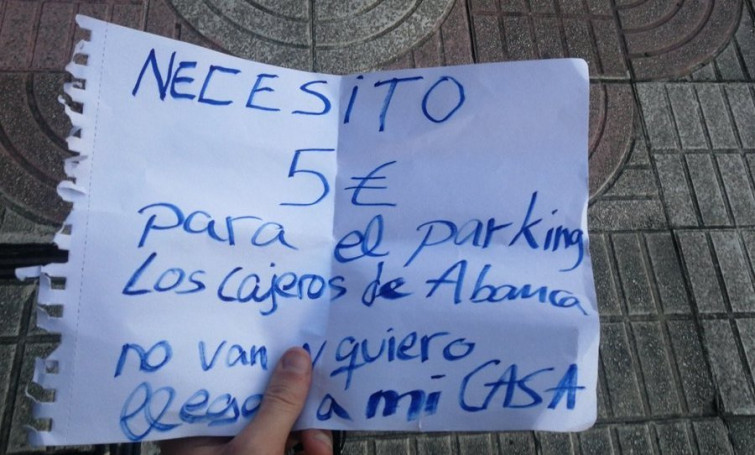 NECESITO
5€
para el parking
Los cajeros de Abanca
no van y quiero
llegar a mi CASA